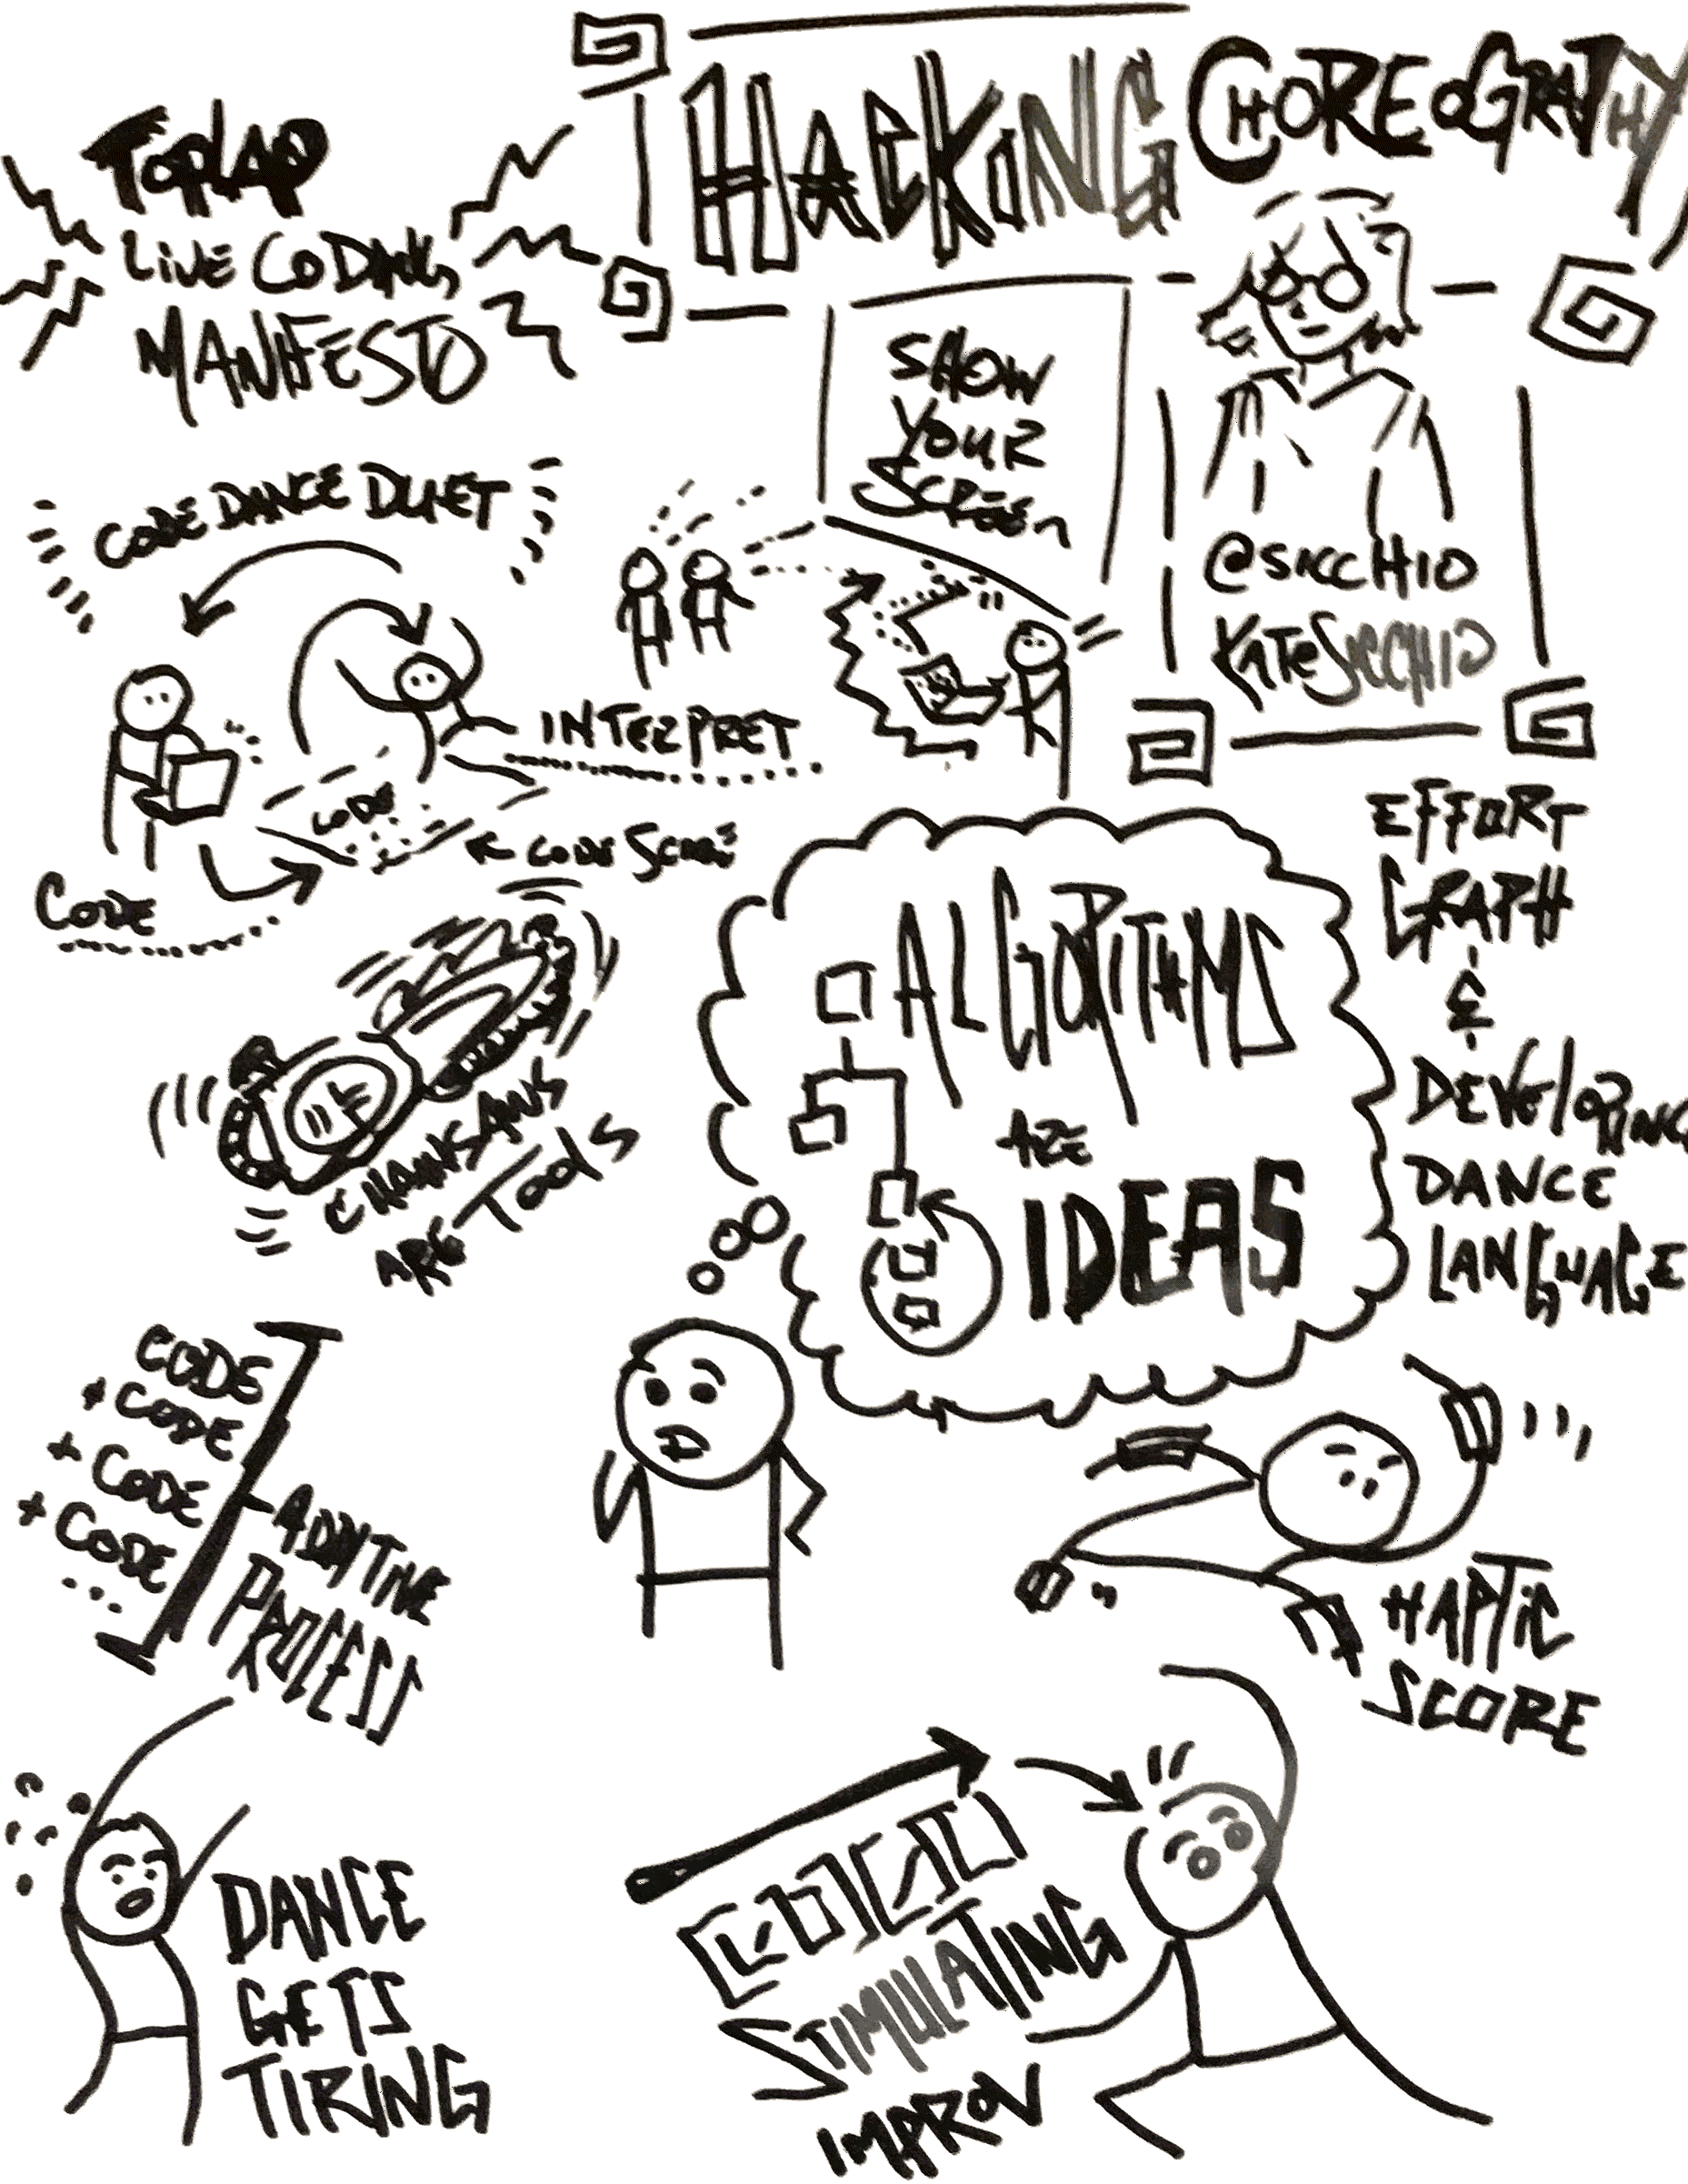 HACKING CHOREOGRAPHY
TOPLAP
LIVE CODING
MANIFESTO
SHOW
YOUR
SCREEN
@SICCHIO
KATESICCHIO
CODE DANCE DUET
INTERPRET
CODE
CODE SCORE
CODE
CHAINSAWS
ARE TOOLS
ALGORITHMS
ARE
IDEAS
EFFORT
GRAPH
&
DEVELOPING
DANCE
LANGUAGE
CODE
+ CODE
+ CODE
+ CODE
...
ADDITIVE
PROCESS
HAPTIC
SCORE
DANCE
GETS
TIRING
STIMULATING
IMPROV